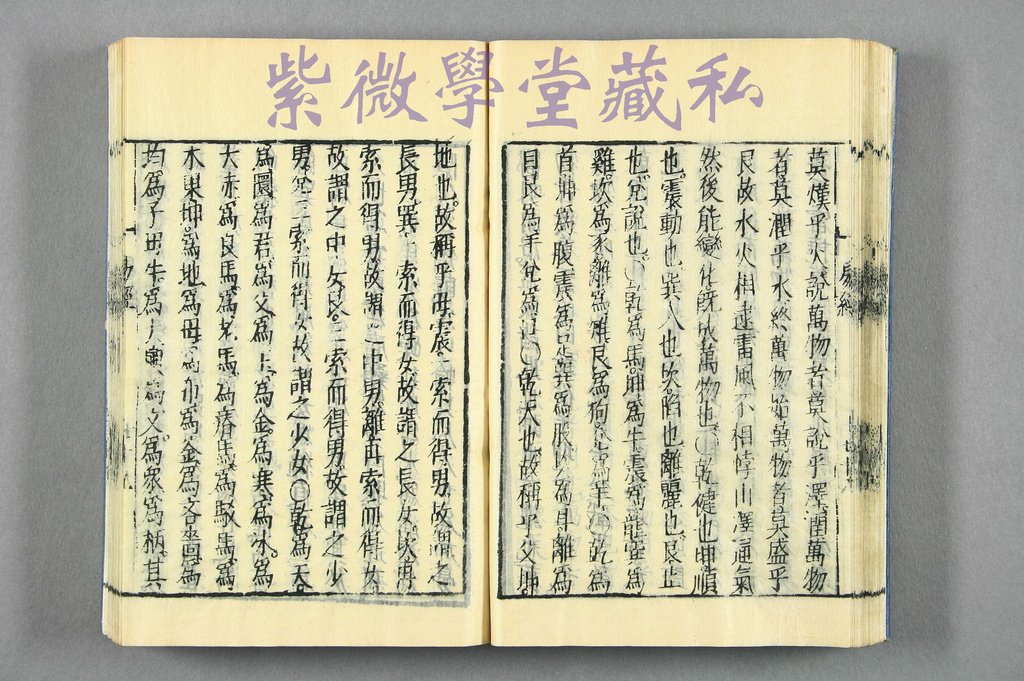 紫微學堂藏私
莫熯乎火說萬物者莫說乎澤潤萬物
者莫潤乎水終萬物始萬物者莫盛乎
艮故水火相逮雷風不相悖山澤通氣
然後能變化既成萬物也○乾健也坤順
也震動也巽入也坎陷也離麗也艮止
也兌說也○乾為馬坤為牛震為龍巽為
雞坎為豕離為雉艮為狗兌為羊○乾為
首坤為腹震為足巽為股坎為耳離為
目艮為手兌為口○乾天也故稱乎父坤
地也故稱乎母震一索而得男故謂之
長男巽一索而得女故謂之長女坎再
索而得男故謂之中男離再索而得女
故謂之中女艮三索而得男故謂之少
男兌三索而得女故謂之少女○乾為天
為圜為君為父為玉為金為寒為冰為
大赤為良馬為老馬為瘠馬為駁馬為
木果坤為地為母為布為釜為吝嗇為
均為子母牛為大輿為文為衆為柄其